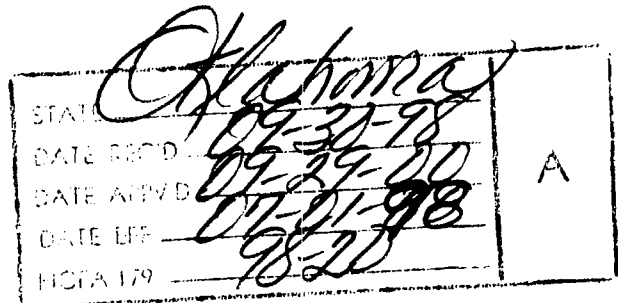 STATE Oklahoma
DATE REC'D 09-30-98
DATE APPV'D 09-29-00
DATE EFF 07-01-98
HCFA 179 98-20
A